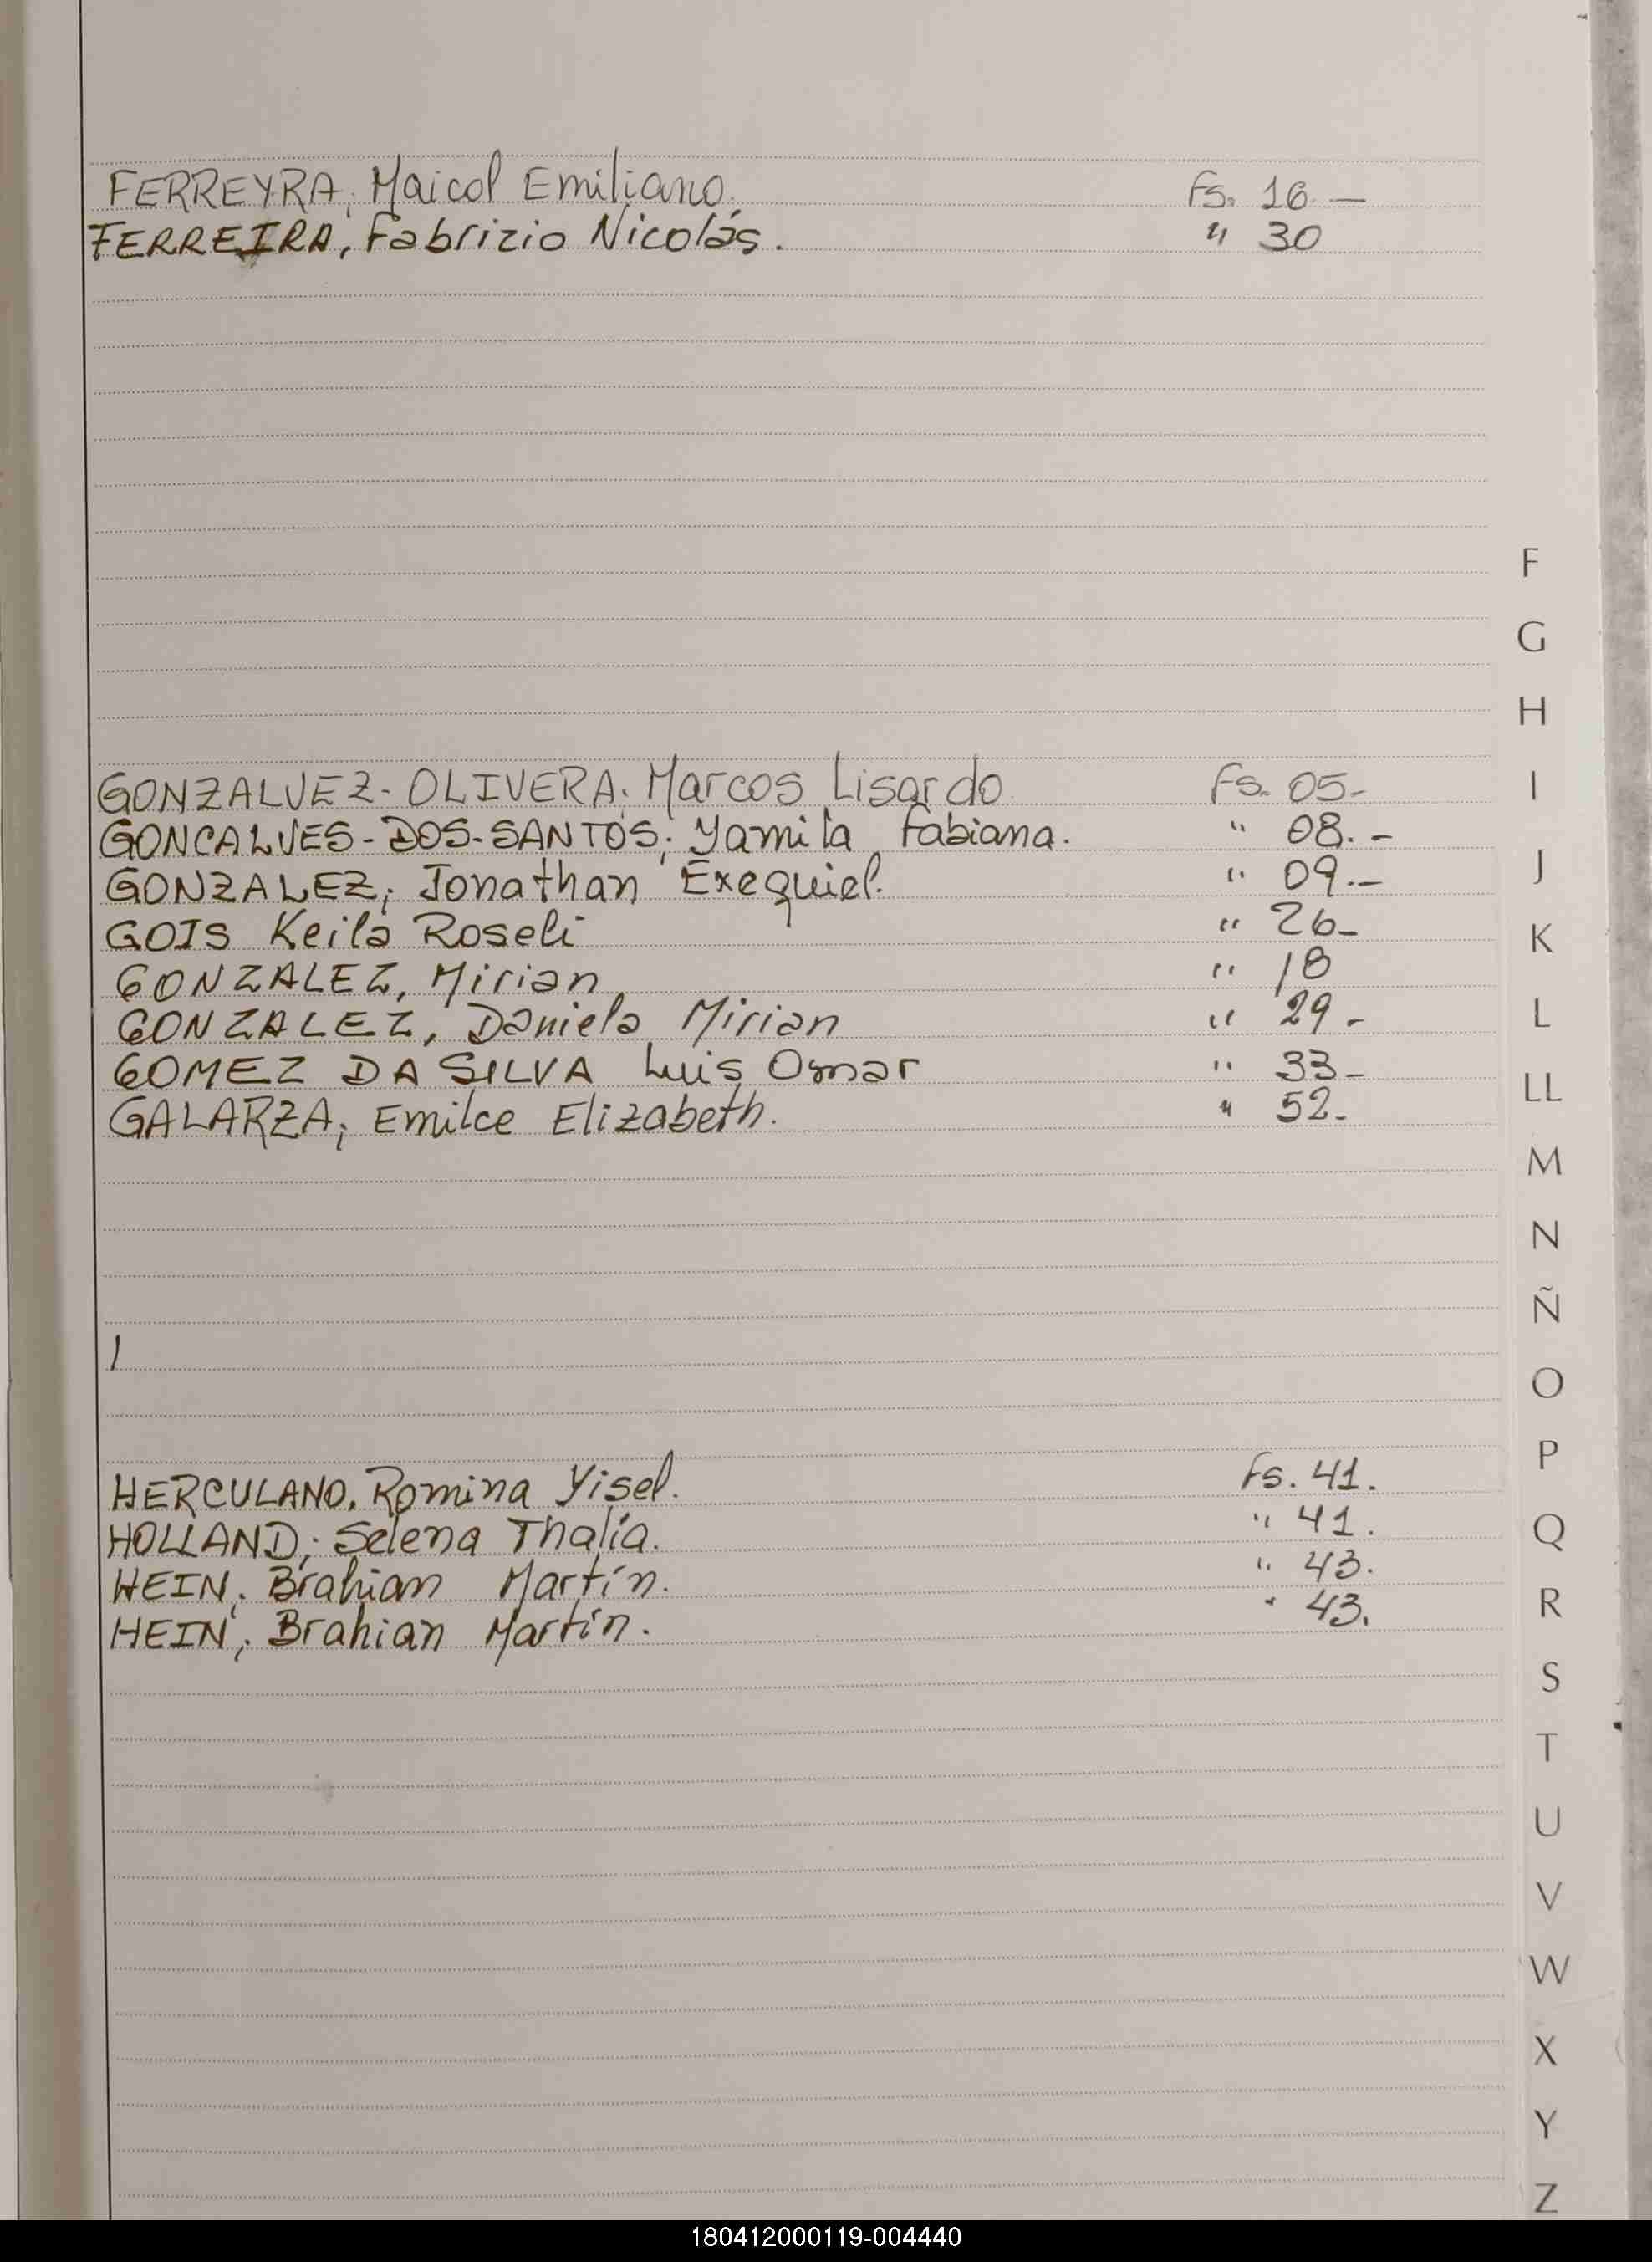 FERREYRA; Maicol Emiliano. Fs. 16.—
FERREIRA, Fabrizio Nicolás. " 30
F
G
H
GONZALVEZ-OLIVERA. Marcos Lisardo Fs. 05-
I
GONCALVES-DOS-SANTOS; Yamila Fabiana. " 08.-
GONZALEZ; Jonathan Exequiel. " 09.-
J
GOIS Keila Roseli " 26-
K
GONZALEZ, Mirian " 18
GONZALEZ, Daniela Mirian " 29-
L
GOMEZ DA SILVA Luis Omar " 33-
LL
GALARZA; Emilce Elizabeth. " 52-
M
N
Ñ
O
P
HERCULANO. Romina Yisel. Fs. 41.
HOLLAND; Selena Thalía. " 41.
Q
HEIN; Brahian Martín. " 43.
R
HEIN; Brahian Martín. " 43.
S
T
U
V
W
X
Y
Z
180412000119-004440